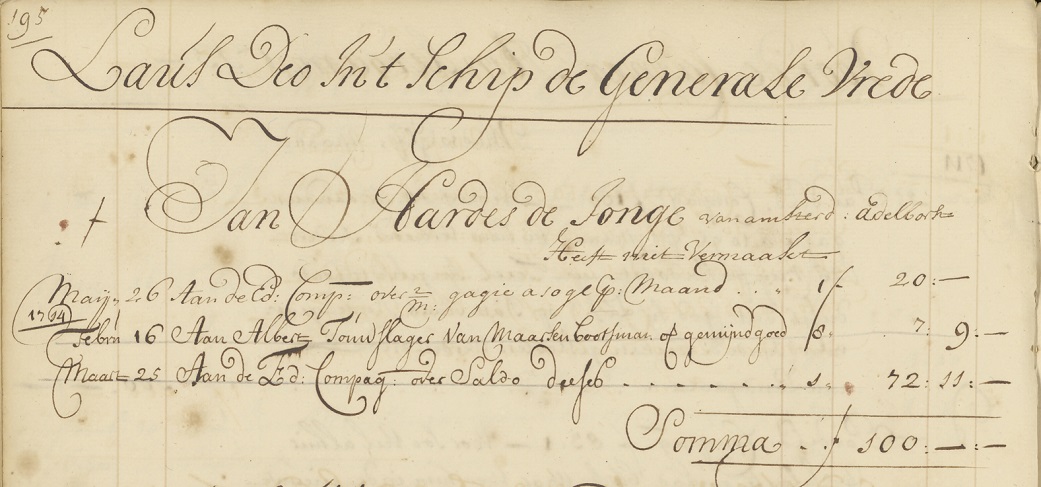 195
Laus Deo In't Schip de Generale Vrede
Jan Hardes de Jonge van amsterd: adelborst
Heeft niet Vermaakt
Maij 26 Aan de Ed: Comp: over 2/m: gagie a 10 gl p: Maand . . 1 f 20:—
1714
Febrij 16 Aan Albert Touwslager Van Maarsen bootsman op gemijndgoed 8 7: 9:—
Maart 25 Aan de Ed: Compag: over Saldo deeses . . . . . . . . 1 72: 11:—
Somma . f 100:—:—